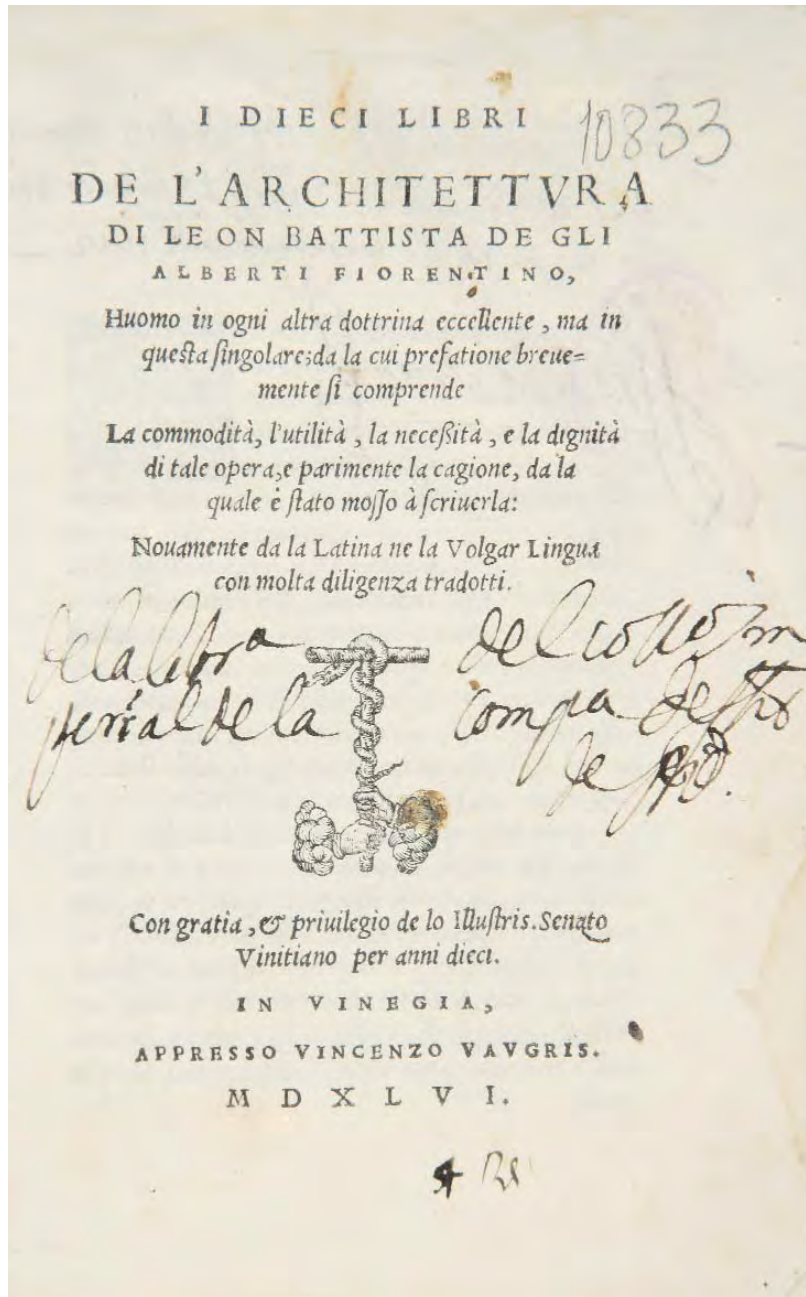 I DIECI LIBRI
10833
DE L'ARCHITETTVRA
DI LEON BATTISTA DE GLI
ALBERTI FIORENTINO,
Huomo in ogni altra dottrina eccellente, ma in
questa singolare; da la cui prefatione breue=
mente si comprende
La commodità, l'utilità, la neceßità, e la dignità
di tale opera, e parimente la cagione, da la
quale è stato mosso à scriuerla:
Nouamente da la Latina ne la Volgar Lingua
con molta diligenza tradotti.
de la libra del im
perial de la compa de
de
Con gratia, & priuilegio de lo Illustris. Senato
Vinitiano per anni dieci.
IN VINEGIA,
APPRESSO VINCENZO VAVGRIS.
MDXLVI.